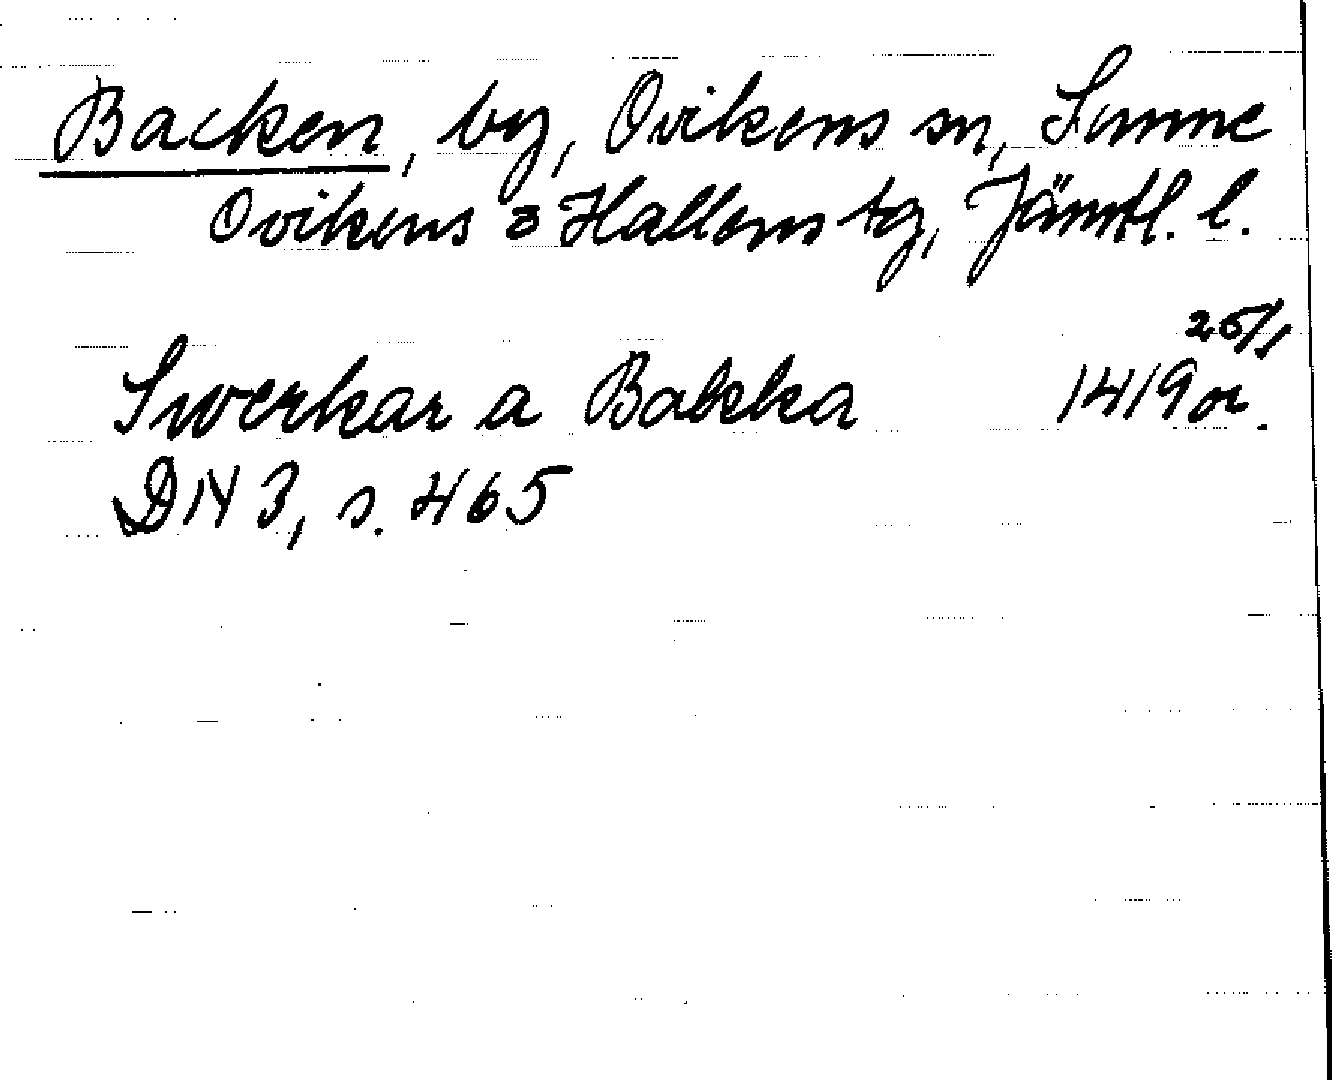 Backen, by, Ovikens sn, Sunne
Ovikens o Hallens tg, Jämtl. l.
Swerkar a Bakka 1419 25/1 or.
DN 3, s. 465